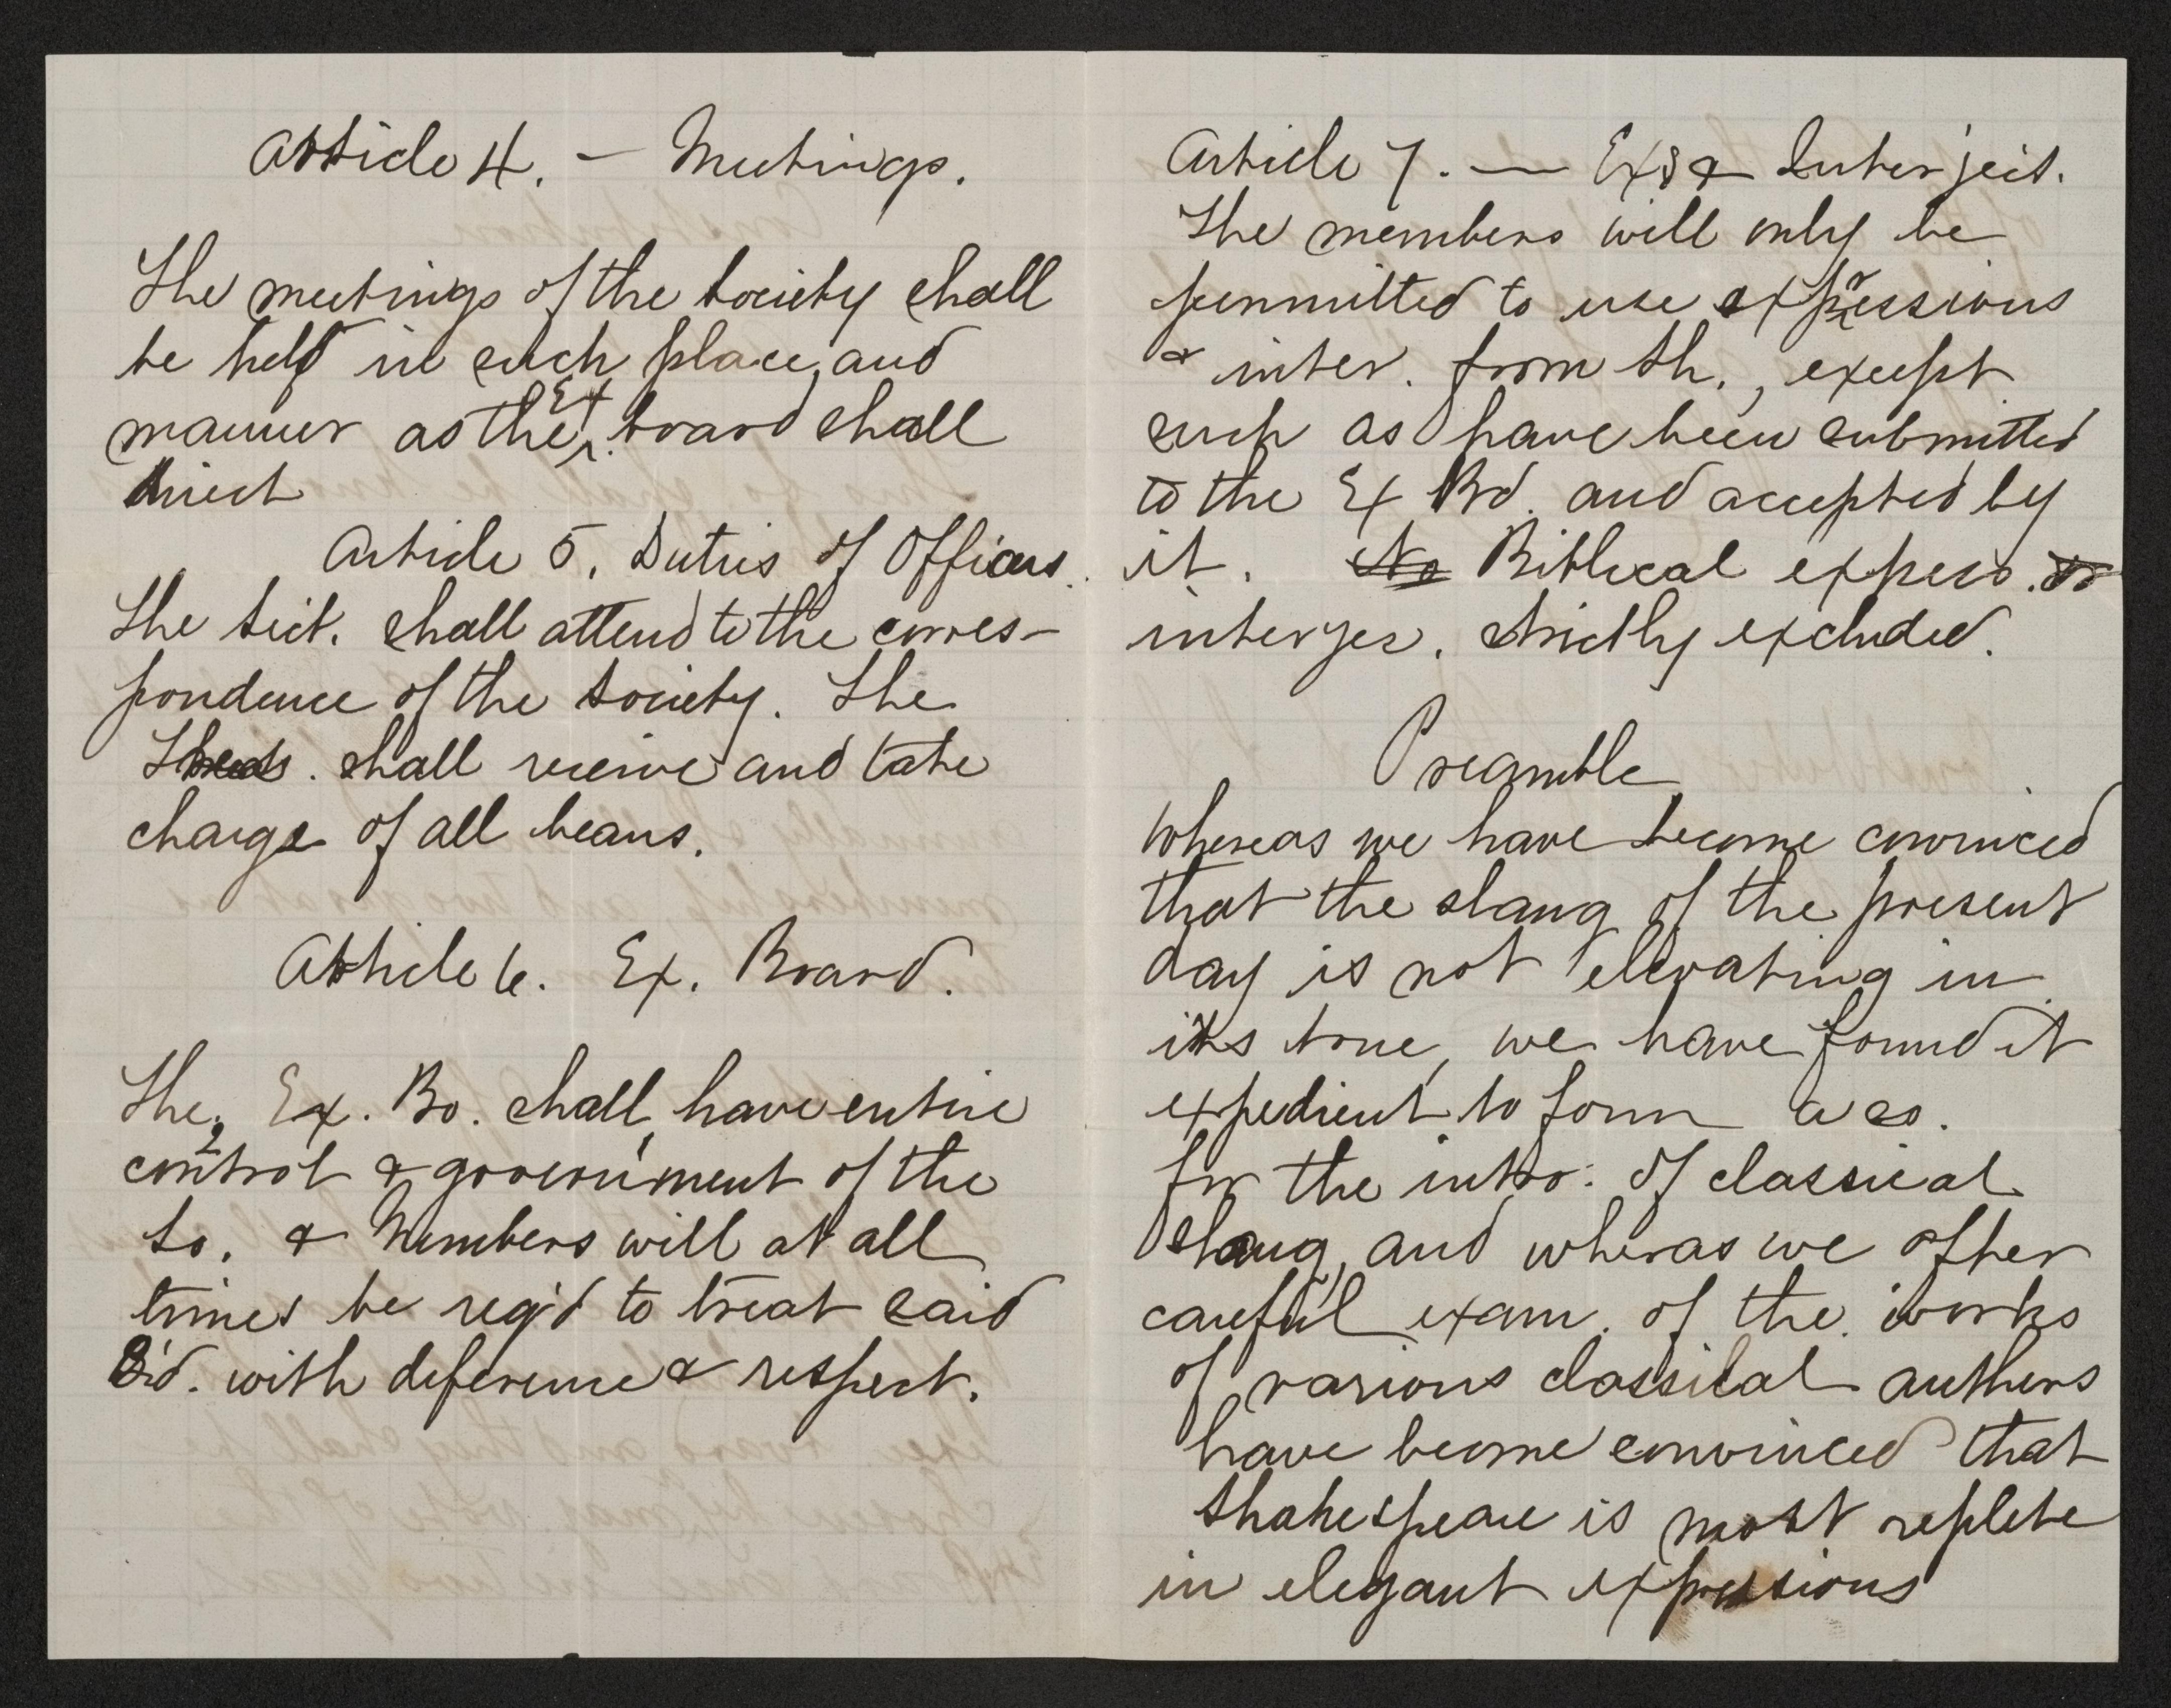 Article 4. — Meetings.
The meetings of the Society shall
be held in such place, and
manner as the Ex. board shall
direct
Article 5. Duties of Officers.
The Sect. shall attend to the corres-
pondence of the Society. The
shall receive and take
charge of all beans.
Article 6. Ex. Board.
The Ex. Bo. shall have entire
control & government of the
So. & Members will at all
times be req'd to treat said
B'd. with deference & respect.
Article 7. — Exs & Interject.
The members will only be
permitted to use expressions
& inter. from Sh., except
such as have been submitted
to the Ex Bd. and accepted by
it. No Biblical express. or
interjec. strictly excluded.
Preamble
Whereas we have become convinced
that the slang of the present
day is not elevating in
its tone, we have found it
expedient to form a so.
for the intro: of classical
slang, and wheras we after
careful exam. of the works
of various classical authors
have become convinced that
Shakespeare is most replete
in elegant expressions